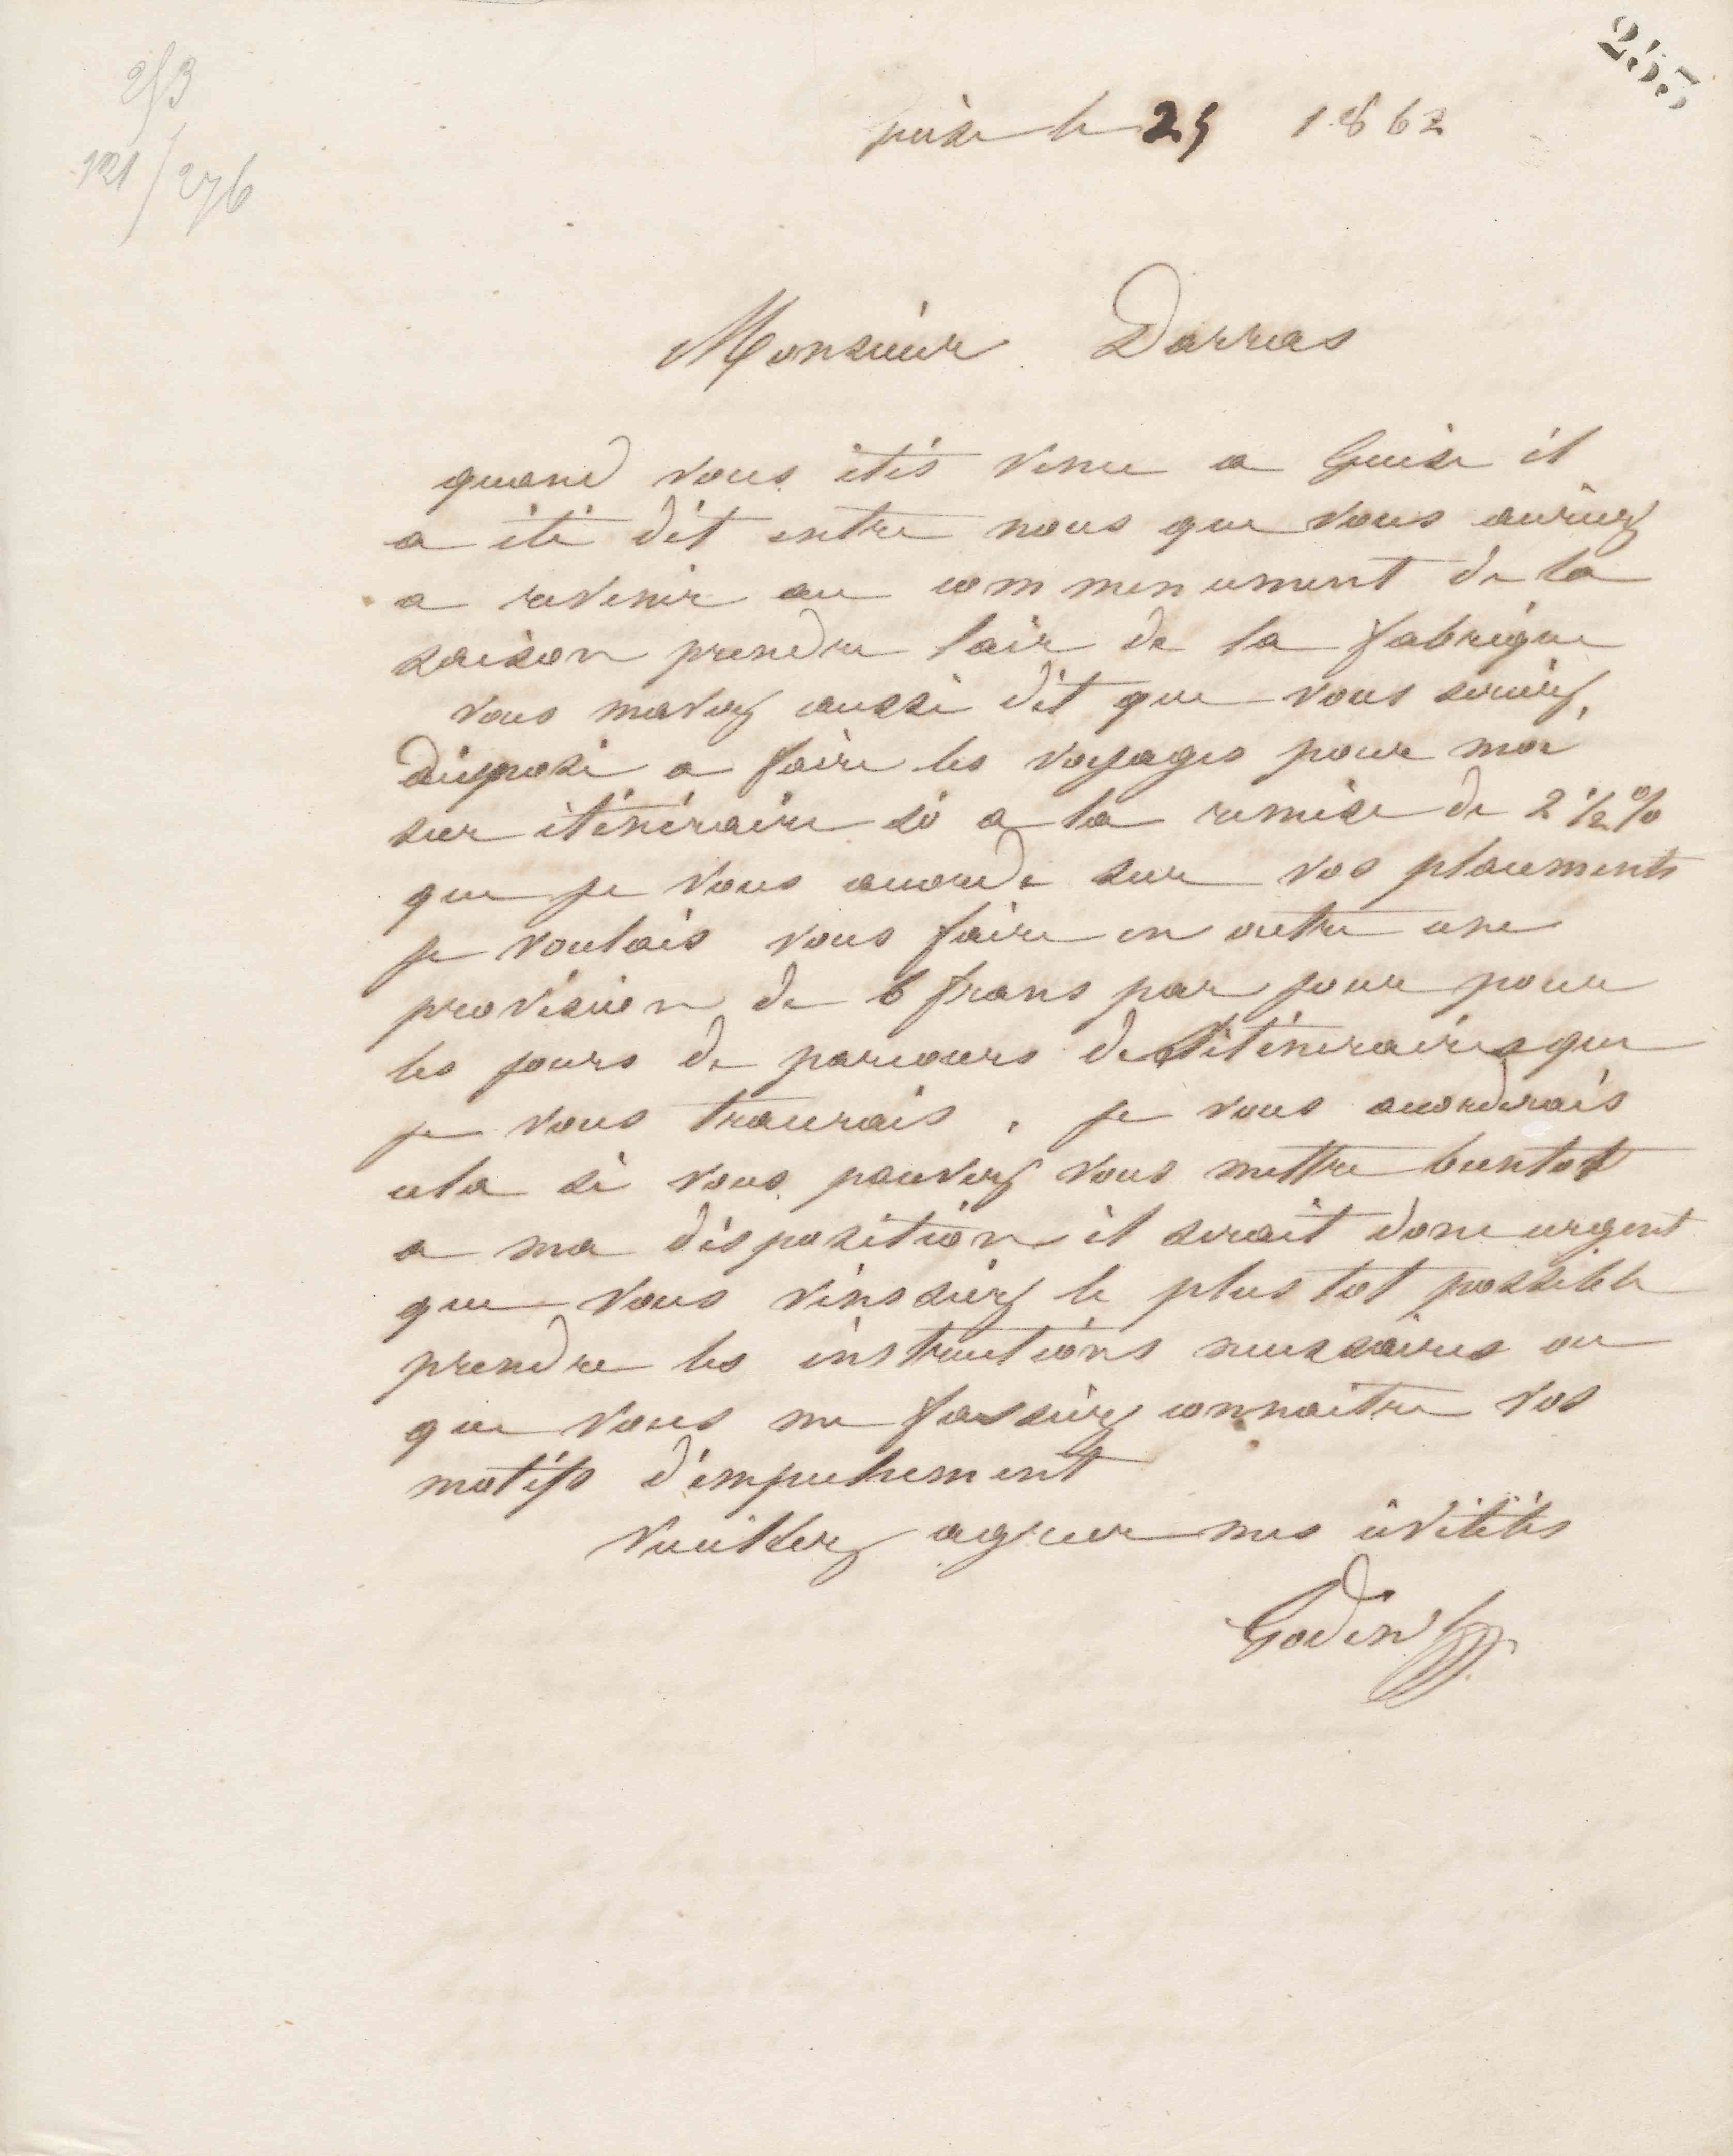 253
253
121/276
guise le 25 1862
Monsieur Darras
quand vous etés venu a Guise il
a été dit entre nous que vous auriez
a revenir au commencement de la
saison prendre lair de la fabrique
vous mavez aussi dit que vous seriez
disposé a faire les voyages pour moi
sur itinéraire si a la remise de 2 1/2 %
que je vous accorde sur vos placements
je voulais vous faire en outre une
provision de 6 frans par jour pour
les jours de parcours des itinéraires que
je vous tracerais . je vous accorderais
cela si vous pouvez vous mettre bientot
a ma disposition il serait donc urgent
que vous vinssiez le plus tot possible
prendre les instructions necessaires ou
que vous me fassiez connaitre vos
motifs d'empechement
Veuillez agreer mes civilités
Godin